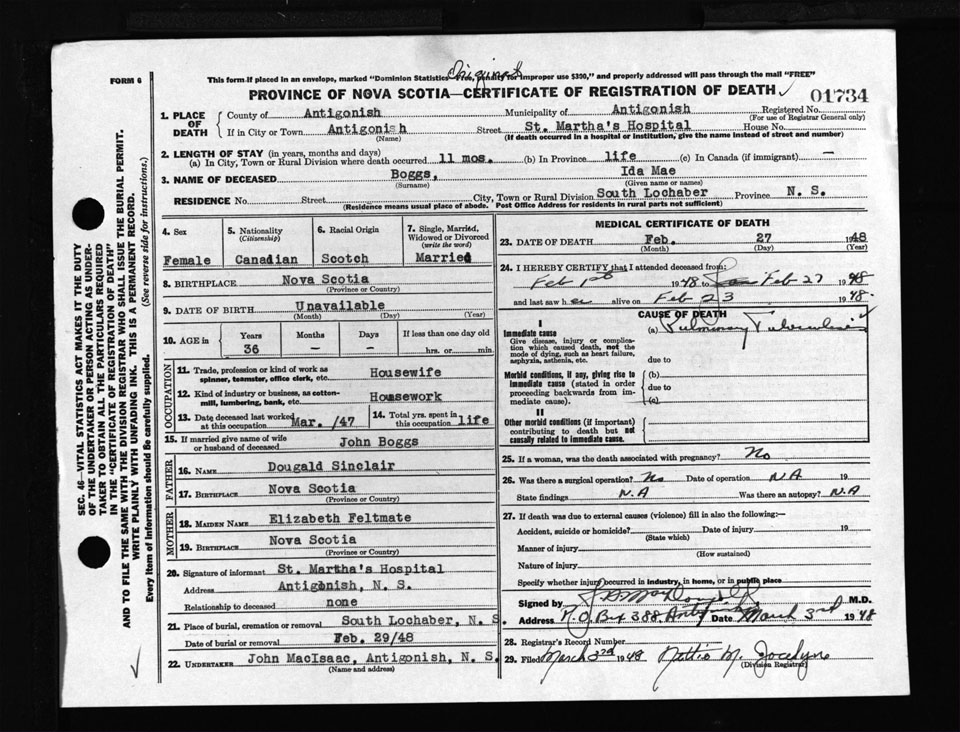 FORM 6
Original
This form if placed in an envelope, marked "Dominion Statistics—Free, penalty for improper use $300," and properly addressed will pass through the mail "FREE"
PROVINCE OF NOVA SCOTIA—CERTIFICATE OF REGISTRATION OF DEATH ✓
01734
1. PLACE OF DEATH
County of Antigonish Municipality of Antigonish Registered No.
(For use of Registrar General only)
If in City or Town Antigonish Street St. Martha's Hospital House No.
(Name) (If death occurred in a hospital or institution, give the name instead of street and number)
2. LENGTH OF STAY (in years, months and days)
(a) In City, Town or Rural Division where death occurred 11 mos. (b) In Province life (c) In Canada (if immigrant) —
3. NAME OF DECEASED Boggs, Ida Mae
(Surname) (Given name or names)
RESIDENCE No. Street City, Town or Rural Division South Lochaber Province N. S.
(Residence means usual place of abode. Post Office Address for residents in rural parts not sufficient)
4. Sex 5. Nationality (Citizenship) 6. Racial Origin 7. Single, Married, Widowed or Divorced (write the word)
Female Canadian Scotch Married
8. BIRTHPLACE Nova Scotia
(Province or Country)
9. DATE OF BIRTH Unavailable
(Month) (Day) (Year)
10. AGE in Years Months Days If less than one day old
36 — — hrs. or min.
OCCUPATION
11. Trade, profession or kind of work as spinner, teamster, office clerk, etc. Housewife
12. Kind of industry or business, as cotton-mill, lumbering, bank, etc. Housework
13. Date deceased last worked at this occupation Mar. /47 14. Total yrs. spent in this occupation life
15. If married give name of wife or husband of deceased John Boggs
FATHER
16. NAME Dougald Sinclair
17. BIRTHPLACE Nova Scotia
(Province or Country)
MOTHER
18. MAIDEN NAME Elizabeth Feltmate
19. BIRTHPLACE Nova Scotia
(Province or Country)
20. Signature of informant St. Martha's Hospital
Address Antigonish, N. S.
Relationship to deceased none
21. Place of burial, cremation or removal South Lochaber, N. S.
Date of burial or removal Feb. 29/48
22. UNDERTAKER John MacIsaac, Antigonish, N. S.
(Name and address)
MEDICAL CERTIFICATE OF DEATH
23. DATE OF DEATH Feb. 27 1948
(Month) (Day) (Year)
24. I HEREBY CERTIFY that I attended deceased from:
Feb 1st 1948 to Feb 27 1948
and last saw her alive on Feb 23 1948.
CAUSE OF DEATH
I
Immediate cause
Give disease, injury or complication which caused death, not the mode of dying, such as heart failure, asphyxia, asthenia, etc.
(a) Pulmonary Tuberculosis
due to
Morbid conditions, if any, giving rise to immediate cause (stated in order proceeding backwards from immediate cause).
(b)
due to
(c)
II
Other morbid conditions (if important) contributing to death but not causally related to immediate cause.
25. If a woman, was the death associated with pregnancy? No
26. Was there a surgical operation? No Date of operation NA 19
State findings N.A Was there an autopsy? N.A
27. If death was due to external causes (violence) fill in also the following:—
Accident, suicide or homicide? Date of injury 19
(State which)
Manner of injury
(How sustained)
Nature of injury
Specify whether injury occurred in industry, in home, or in public place
Signed by MacDonald M.D.
P.O. Box 388, Antigonish Date March 3rd 1948
28. Registrar's Record Number
29. Filed March 3rd 1948 Nettie M. Jocelyn
(Division Registrar)
SEC. 46—VITAL STATISTICS ACT MAKES IT THE DUTY
OF THE UNDERTAKER OR PERSON ACTING AS UNDER-
TAKER TO OBTAIN ALL THE PARTICULARS REQUIRED
IN THE "CERTIFICATE OF REGISTRATION OF DEATH"
AND TO FILE THE SAME WITH THE DIVISION REGISTRAR WHO SHALL ISSUE THE BURIAL PERMIT.
WRITE PLAINLY WITH UNFADING INK. THIS IS A PERMANENT RECORD.
Every item of information should be carefully supplied. (See reverse side for instructions.)